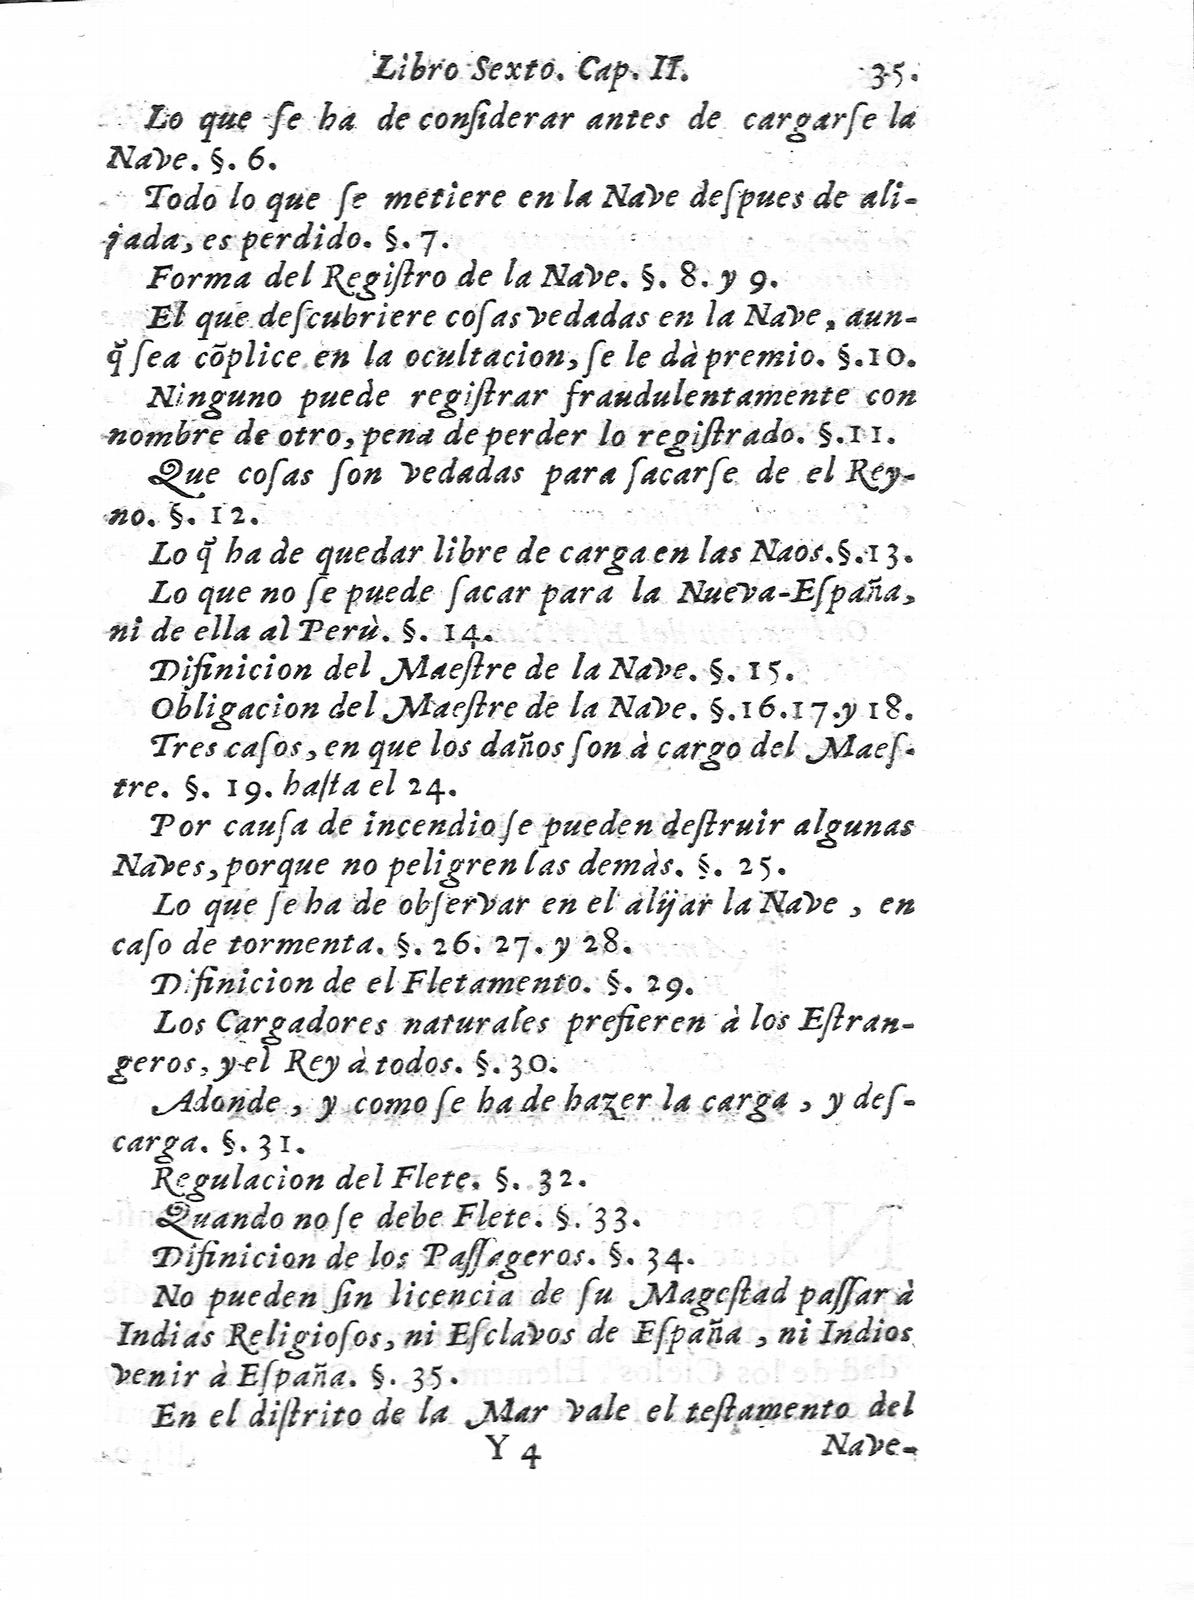 Libro Sexto. Cap. II. 35.
Lo que ſe ha de conſiderar antes de cargarſe la
Nave. §. 6.
Todo lo que ſe metiere en la Nave deſpues de ali-
jada, es perdido. §. 7.
Forma del Regiſtro de la Nave. §. 8. y 9.
El que deſcubriere coſas vedadas en la Nave, aun-
q̃ ſea cõplice en la ocultacion, ſe le dà premio. §. 10.
Ninguno puede regiſtrar fraudulentamente con
nombre de otro, pena de perder lo regiſtrado. §. 11.
Que coſas ſon vedadas para ſacarſe de el Rey-
no. §. 12.
Lo q̃ ha de quedar libre de carga en las Naos. §. 13.
Lo que no ſe puede ſacar para la Nueva-Eſpaña,
ni de ella al Perù. §. 14.
Difinicion del Maeſtre de la Nave. §. 15.
Obligacion del Maeſtre de la Nave. §. 16. 17. y 18.
Tres caſos, en que los daños ſon à cargo del Maeſ-
tre. §. 19. haſta el 24.
Por cauſa de incendio ſe pueden deſtruir algunas
Naves, porque no peligren las demàs. §. 25.
Lo que ſe ha de obſervar en el alijar la Nave, en
caſo de tormenta. §. 26. 27. y 28.
Difinicion de el Fletamento. §. 29.
Los Cargadores naturales prefieren à los Eſtran-
geros, y el Rey à todos. §. 30.
Adonde, y como ſe ha de hazer la carga, y deſ-
carga. §. 31.
Regulacion del Flete. §. 32.
Quando no ſe debe Flete. §. 33.
Difinicion de los Paſſageros. §. 34.
No pueden ſin licencia de ſu Mageſtad paſſar à
Indias Religioſos, ni Eſclavos de Eſpaña, ni Indios
venir à Eſpaña. §. 35.
En el diſtrito de la Mar vale el teſtamento del
Y 4 Nave-